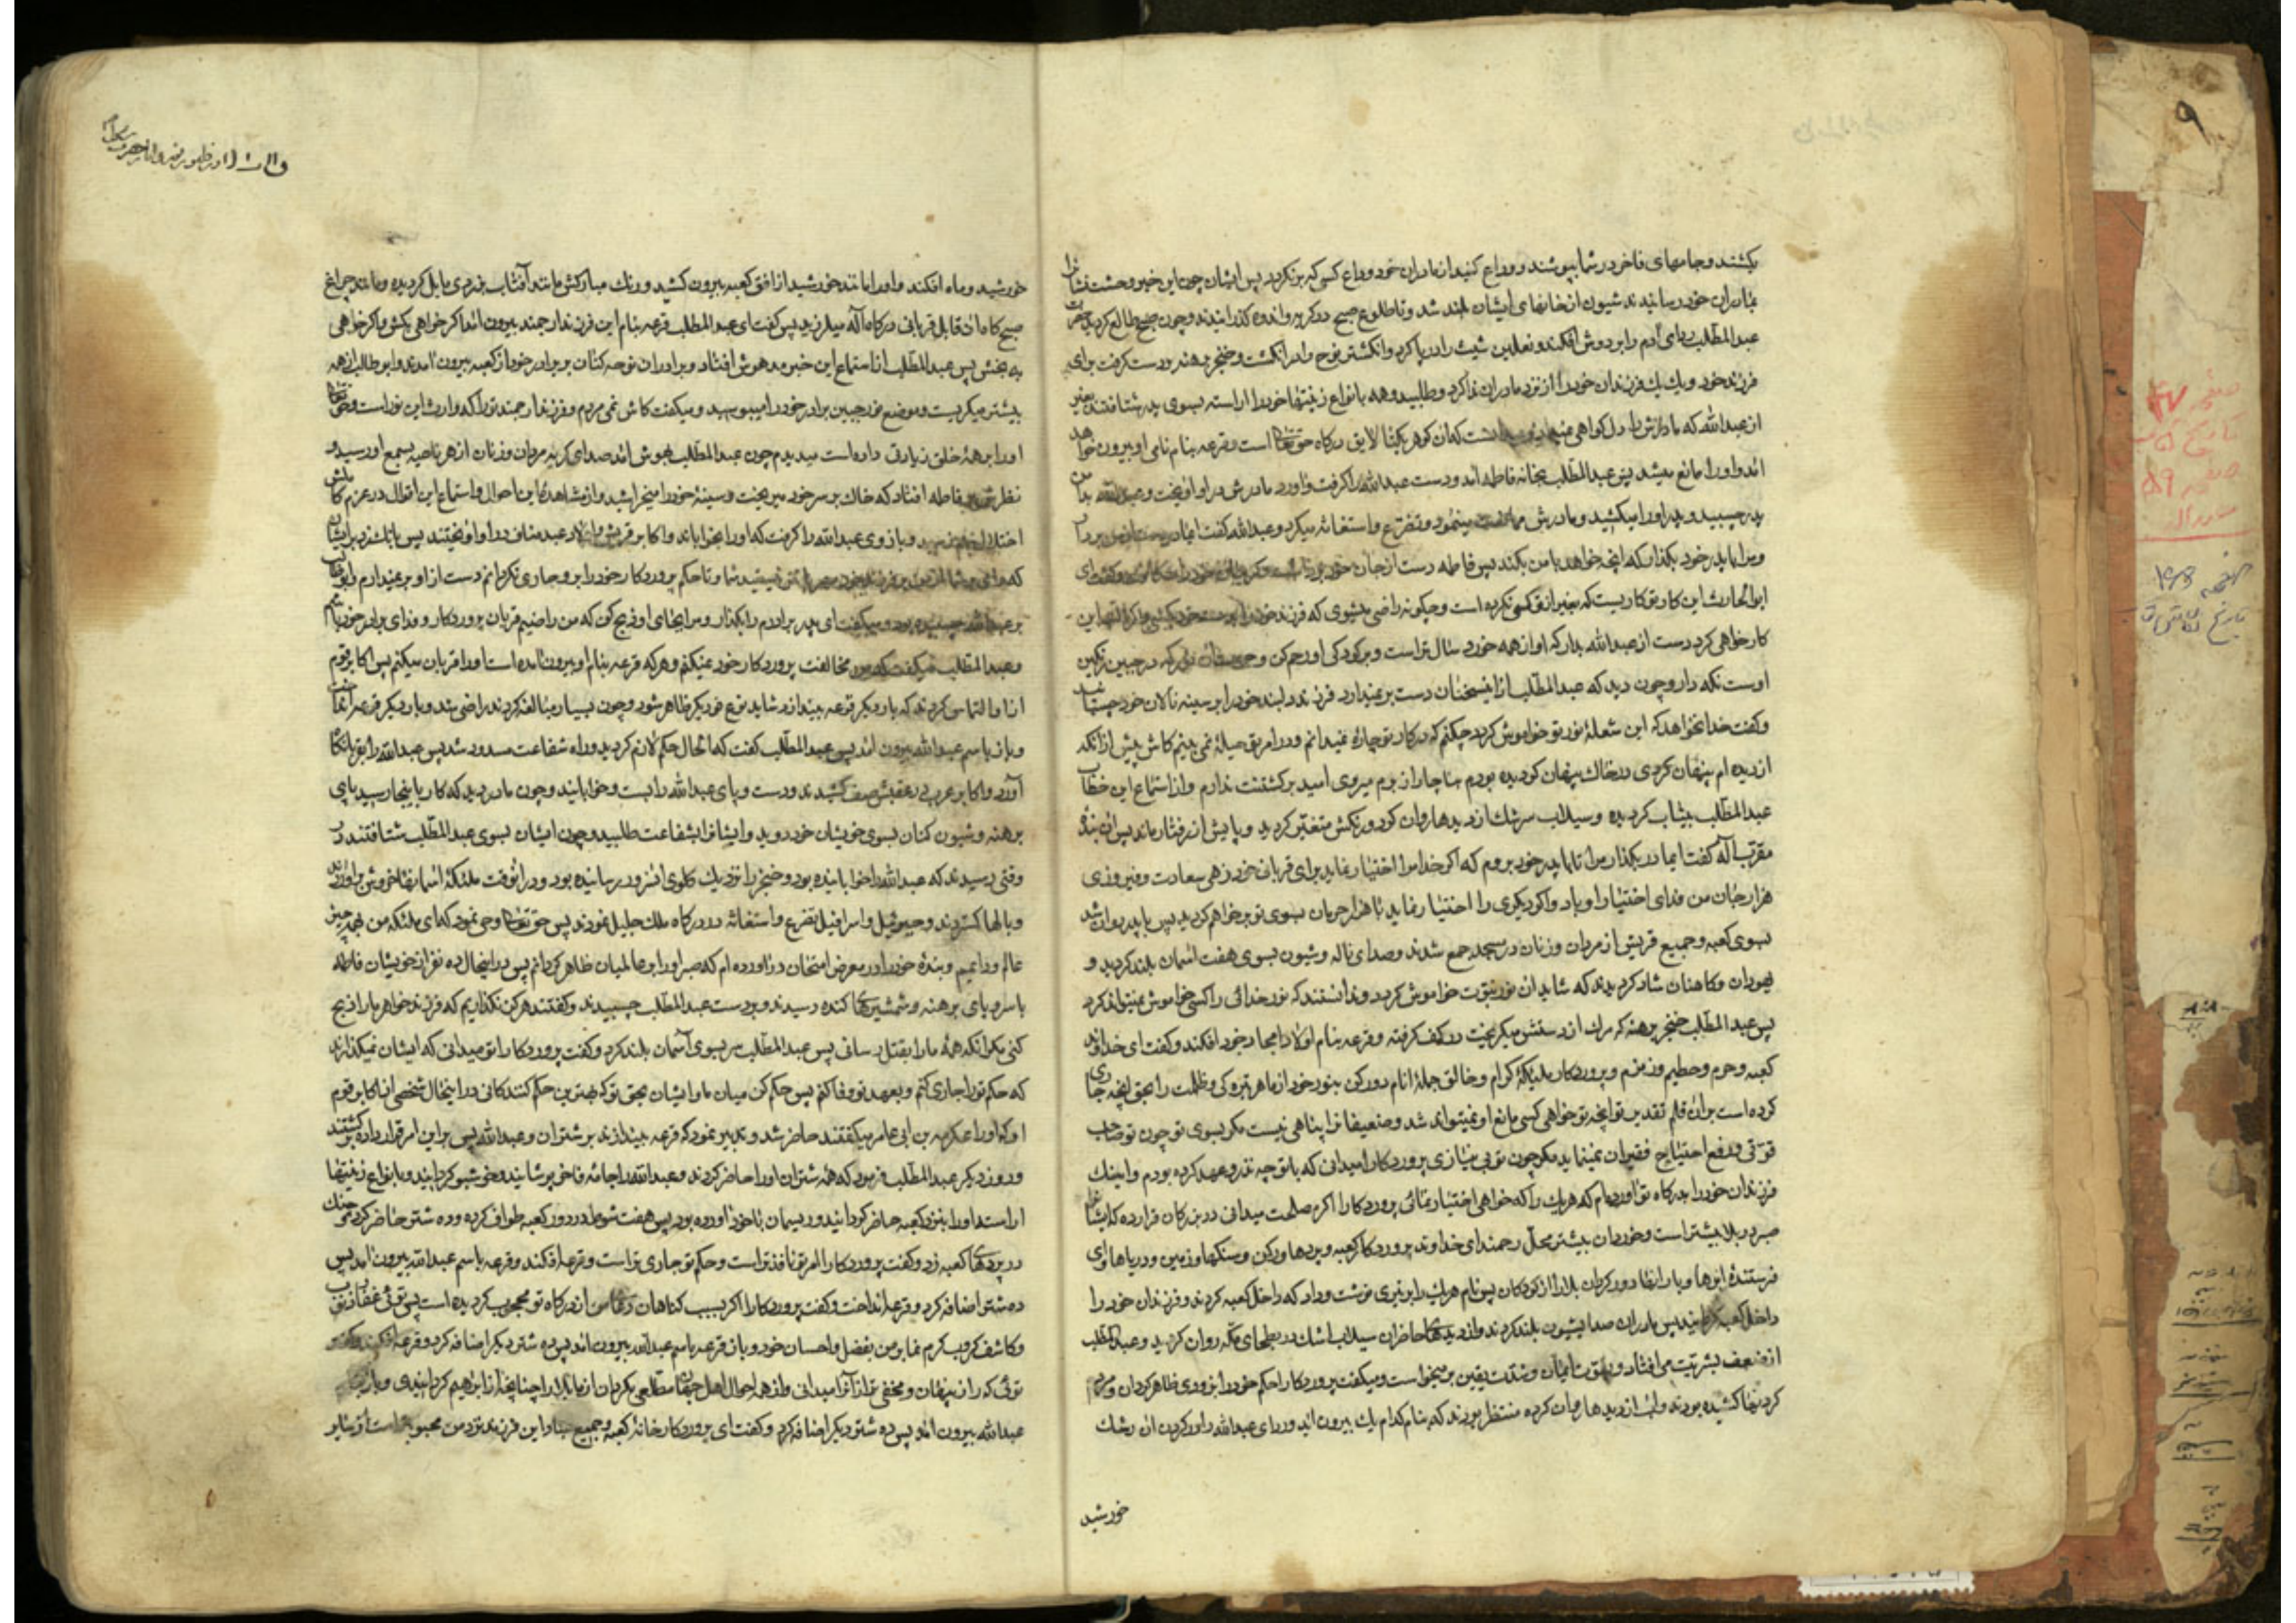 بکشند و جامهای فاخر در شما بپوشند و وداع کنید از مادران خود وداع کسی که برنگردد پس ایشان چون این خبر وحشت فشانرا
بمادران خود رسانیدند شیون از خانهای ایشان بلند شد و تا طلوع صبح در گریه و اندوه گذرانیدند و چون صبح طالع گردید حضرت
عبدالمطلب ردای آدم را بر دوش افکند و نعلین شیث را در پا کرد و انگشتر نوح را در انگشت و خنجر برهنه در دست گرفت برای
فرزند خود و یک یک فرزندان خود را از نزد مادران ندا کرد و طلبید و همه بانواع زینتها خود را اراسته بسوی پدر شتافتند بغیر
از عبدالله که مادرش را دل گواهی میداد که آن گوهر یکتا لایق درگاه حق تعالی است و قرعه بنام نامی او بیرون خواهد
امد و او را مانع میشد پس عبدالمطلب بخانه فاطمه امد و دست عبدالله را گرفت و اورد مادرش در او اویخت و عبدالله بدامن
پدر چسبید و پدر او را میکشید و مادرش ممانعت مینمود و تضرع و استغاثه میکرد و عبدالله گفت ایمادر دست از من بردار
و مرا با پدر خود بگذار که انچه خواهد با من بکند پس فاطمه دست از جان خود برداشت و گریبان خود را چاک کرد و گفت ای
ابوالحارث این کار تو کاریست که بغیر از تو کسی نکرده است و چگونه راضی میشوی که فرزند خود را بدست خود بکشی و اگر البته این
کار خواهی کرد دست از عبدالله بدار که او از همه خورد سال تر است و بر کودکی او رحم کن و حرمت آن نور که در جبین نگین
اوست نگه دار و چون دید که عبدالمطلب از اینسخنان دست بر نمیدارد فرزند دلبند خود را بر سینه نالان خود چسبانید
و گفت خدا نخواهد که این شعلهٔ نور تو خواموش گردد چکنم که در کار تو چارهٔ نمیدانم و در امر تو حیلهٔ نمی بینم کاش پیش از انکه
از دیده ام پنهان گردی در خاک پنهان گردیده بودم بناچار از برم میروی امید برگشتنت ندارم و از استماع این خطاب
عبدالمطلب بیتاب گردیده و سیلاب سرشک از دیدها روان کرد و رنکش متغیر گردید و پایش از رفتار ماند پس ان بندهٔ
مقرب آله گفت ایمادر بگذار مرا تا با پدر خود بروم که اگر خدا مرا اختیار نماید برای قربانی خود زهی سعادت و فیروزی
هزار جان من فدای اختیار او باد و اگر دیگری را اختیار نماید با هزار حرمان بسوی تو بر خواهم گردید پس با پدر روان شد
بسوی کعبه و جمیع قریش از مردان و زنان در مسجد جمع شدند و صدای ناله و شیون بسوی هفت اسمان بلند گردید و
یهودان و کاهنان شاد گردیدند که شاید ان نور نبوت خواموش گردد و ندانستند که نور خدائی را کسی خواموش نمیتواند کرد
پس عبدالمطلب خنجر برهنه که مرگ از دستش میگریخت در کف گرفته و قرعه بنام اولاد امجاد خود افکند و گفت ای خداوند
کعبه و حرم و حطیم و زمزم و پروردگار ملائکهٔ کرام و خالق جملهٔ انام دور کن بنور خود از ما هر تیره کی و ظلمت را بحق انچه جاری
کرده است بران قلم تقدیر تو انچه تو خواهی کسی مانع او نمیتواند شد و ضعیفانرا پناهی نیست مگر بسوی تو چون تو صاحب
قوتی و دفع احتیاج فقیران نمینماید مگر چون تو بی نیازی پروردگارا میدانی که با تو چه نذر و عهد کرده بودم و اینک
فرزندان خود را بدرگاه تو آورده ام که هر یک را که خواهی اختیار نمائی پروردگارا اگر صلحت میدانی در بزرگان قرار ده که ایشانرا
صبر در بلا بیشتر است و خوردان بیشتر محل رحمند ای خداوند پروردگار کعبه و پردها و رکن و سنگها و زمین و دریاها و ای
فرستندهٔ ابرها و بارانها دور گردان بلا را از کودکان پس نام هر یک را بر تیری نوشت و داد که داخل کعبه کردند و فرزندان خود را
داخل کعبه گردانید پس مادران صدا بشیون بلند کردند و از دیدهای حاضران سیلاب اشک در بطحای مکه روان گردید و عبدالمطلب
از ضعف بشریت می افتاد و بقوت ایمان و شدت یقین بر میخواست و میگفت پروردگارا حکم خود را بزودی ظاهر گردان و مردم
گردنها کشیده بودند و اب از دیدها روان کرده منتظر بودند که بنام کدام یک بیرون اید و ردای عبدالله را در گردن ان رشک
خورشید
خورشید و ماه افکند و او را مانند خورشید از افق کعبه بیرون کشید و رنک مبارکش مانند آفتاب بزردی مایل گردیده و مانند چراغ
صبح کاهان قابل قربانی درگاه آله میلرزید پس گفت ای عبدالمطلب قرعه بنام این فرزند ارجمند بیرون امد اگر خواهی بکش و اگر خواهی
ببخش پس عبدالمطلب از استماع این خبر مدهوش افتاد و برادران نوحه کنان بر برادر خود از کعبه بیرون امدند و ابوطالب از همه
بیشتر میگریست و موضع نور جبین برادر خود را میبوسید و میگفت کاش نمی مردم و فرزند ارجمند تو را که وارث این نور است و حق تعالی
او را بر همهٔ خلق زیادتی داده است میدیدم چون عبدالمطلب بهوش امد صدای گریه مردان و زنان از هر ناحیه بسمع او رسید و
نظرش بر فاطمه افتاد که خاک بر سر خود میریخت و سینهٔ خود را میخراشید و از مشاهدهٔ این احوال و استماع این اقوال در عزم کاملش
اختلال بهم نرسید و بازوی عبدالله را گرفت که او را بخواباند و اکابر قریش و اولاد عبدمناف در او اویختند پس بانک زد بر ایشان
که وای بر شما شما مهربان تر نیستید بر فرزند من از من و تا حکم پروردگار خود را بر او جاری نگردانم دست از او بر نمیدارم و ابوطالب
بر عبدالله چسبیده بود و میگفت ای پدر برادرم را بگذار و مرا بجای او ذبح کن که من راضیم قربان پروردگار و فدای برادر خود باشم
و عبدالمطلب میگفت که من مخالفت پروردگار خود نمیکنم و هر که قرعه بنام او بیرون امده است او را قربان میکنم پس اکابر قوم
از او التماس کردند که بار دیگر قرعه بیندازد شاید نوع دیگر ظاهر شود و چون بسیار مبالغه کردند راضی شد و بار دیگر قرعه انداخت
و باز باسم عبدالله بیرون امد پس عبدالمطلب گفت که الحال حکم لازم گردید و راه شفاعت مسدود شد پس عبدالله را بقربانگاه
آورد و اکابر عرب در عقبش صف کشیدند و دست و پای عبدالله را بست و خوابانید و چون مادر دید که کار باینجا رسید با پای
برهنه و شیون کنان بسوی خویشان خود دوید و ایشانرا بشفاعت طلبید و چون ایشان بسوی عبدالمطلب شتافتند در
وقتی رسیدند که عبدالله را خوابانیده بود و خنجر را نزدیک گلوی انسرور رسانیده بود و در انوقت ملئکهٔ اسمانها خروش براوردند
و بالها گستردند و جبرئیل و اسرافیل تضرع و استغاثه در درگاه ملک جلیل نمودند پس حق تعالی وحی نمود که ای ملئکه من بهمه چیز
عالم و دانایم و بندهٔ خود را در معرض امتحان در اورده ام که صبر او را بر عالمیان ظاهر گردانم پس در اینحال ده نفر از خویشان فاطمه
با سر و پای برهنه و شمشیرهای کنده رسیدند و بر دست عبدالمطلب چسبیدند و گفتند هرگز نگذاریم که فرزند خواهر ما را ذبح
کنی مگر انکه همهٔ ما را بقتل رسانی پس عبدالمطلب سر بسوی آسمان بلند کرد و گفت پروردگارا تو میدانی که ایشان نمیگذارند
که حکم تو را جاری کنم و بعهد تو وفا کنم پس حکم کن میان ما و ایشان بحق تو که بهترین حکم کنندگانی در اینحال شخصی از اکابر قوم
او که او را عکرمه بن ابی عامر میگفتند حاضر شد و تدبیر نمود که قرعه بیندازند بر شتران و عبدالله پس بر این امر قرار داده برگشتند
و روز دیگر عبدالمطلب فرمود که همهٔ شتران او را حاضر کردند و عبدالله را جامهٔ فاخر پوشانیدند و خوشبو گردانیدند و بانواع زینتها
اراست و او را بنزد کعبه حاضر گردانید و ریسمان با خود آورده بود پس هفت شوط در دور کعبه طواف کرده و ده شتر حاضر کرد و چنک
در پردهای کعبه زد و گفت پروردگارا امر تو نافذ است و حکم تو جاری تر است و قرعه افکند و قرعه باسم عبدالله بیرون امد پس
ده شتر اضافه کرد و قرعه انداخت و گفت پروردگارا اگر بسبب گناهان دعای من از درگاه تو محجوب گردیده است پس توئی غفار ذنوب
و کاشف کروب کرم نما بر من بفضل و احسان خود و باز قرعه باسم عبدالله بیرون امد پس ده شتر دیگر اضافه کرد و قرعه افکند و گفت
توئی که راز پنهان و مخفی تر از آنرا میدانی و از همه احوال اهل جهان مطلعی بگردان از ما بلا را چنانچه از ابراهیم گردانیدی و باز بنام
عبدالله بیرون امد پس ده شتر دیگر اضافه کرد و گفت ای پروردگار خانهٔ کعبه و جمیع عباد این فرزند نزد من محبوبتر است از سایر